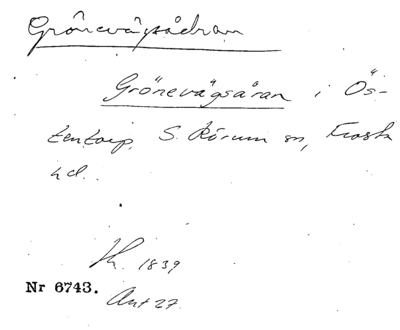 Grönevägsådran
Grönevägsåran i Ös-
tentorp, S. Rörum sn, Frosta
hd.
Sk. 1839
Nr 6743.
Ant 27.